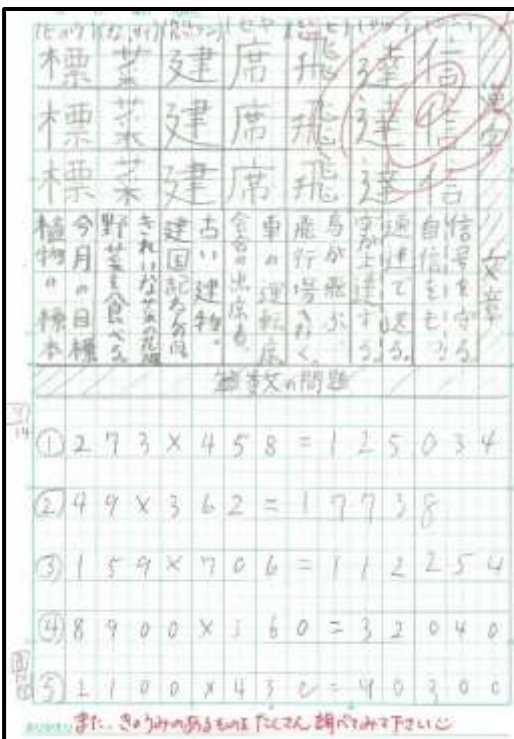 漢字
信 達 飛 席 建 菜 標
信 達 飛 席 建 菜 標
信 達 飛 席 建 菜 標
文章
信号を守る。
自信をもつ。
速達で送る。
字が上達する。
鳥が飛ぶ。
飛行場へ行く。
車の運転席。
会の出席
古い建物。
建国記念の日。
きれいな菜の花畑
野菜を食べる。
今月の目標
植物の標本
算数の問題
①273×458=125034
②49×362=17738
③159×706=112254
④8900×360=32040
⑤2100×430=90300
また、きょうみのあるものを たくさん 調べてみて下さい